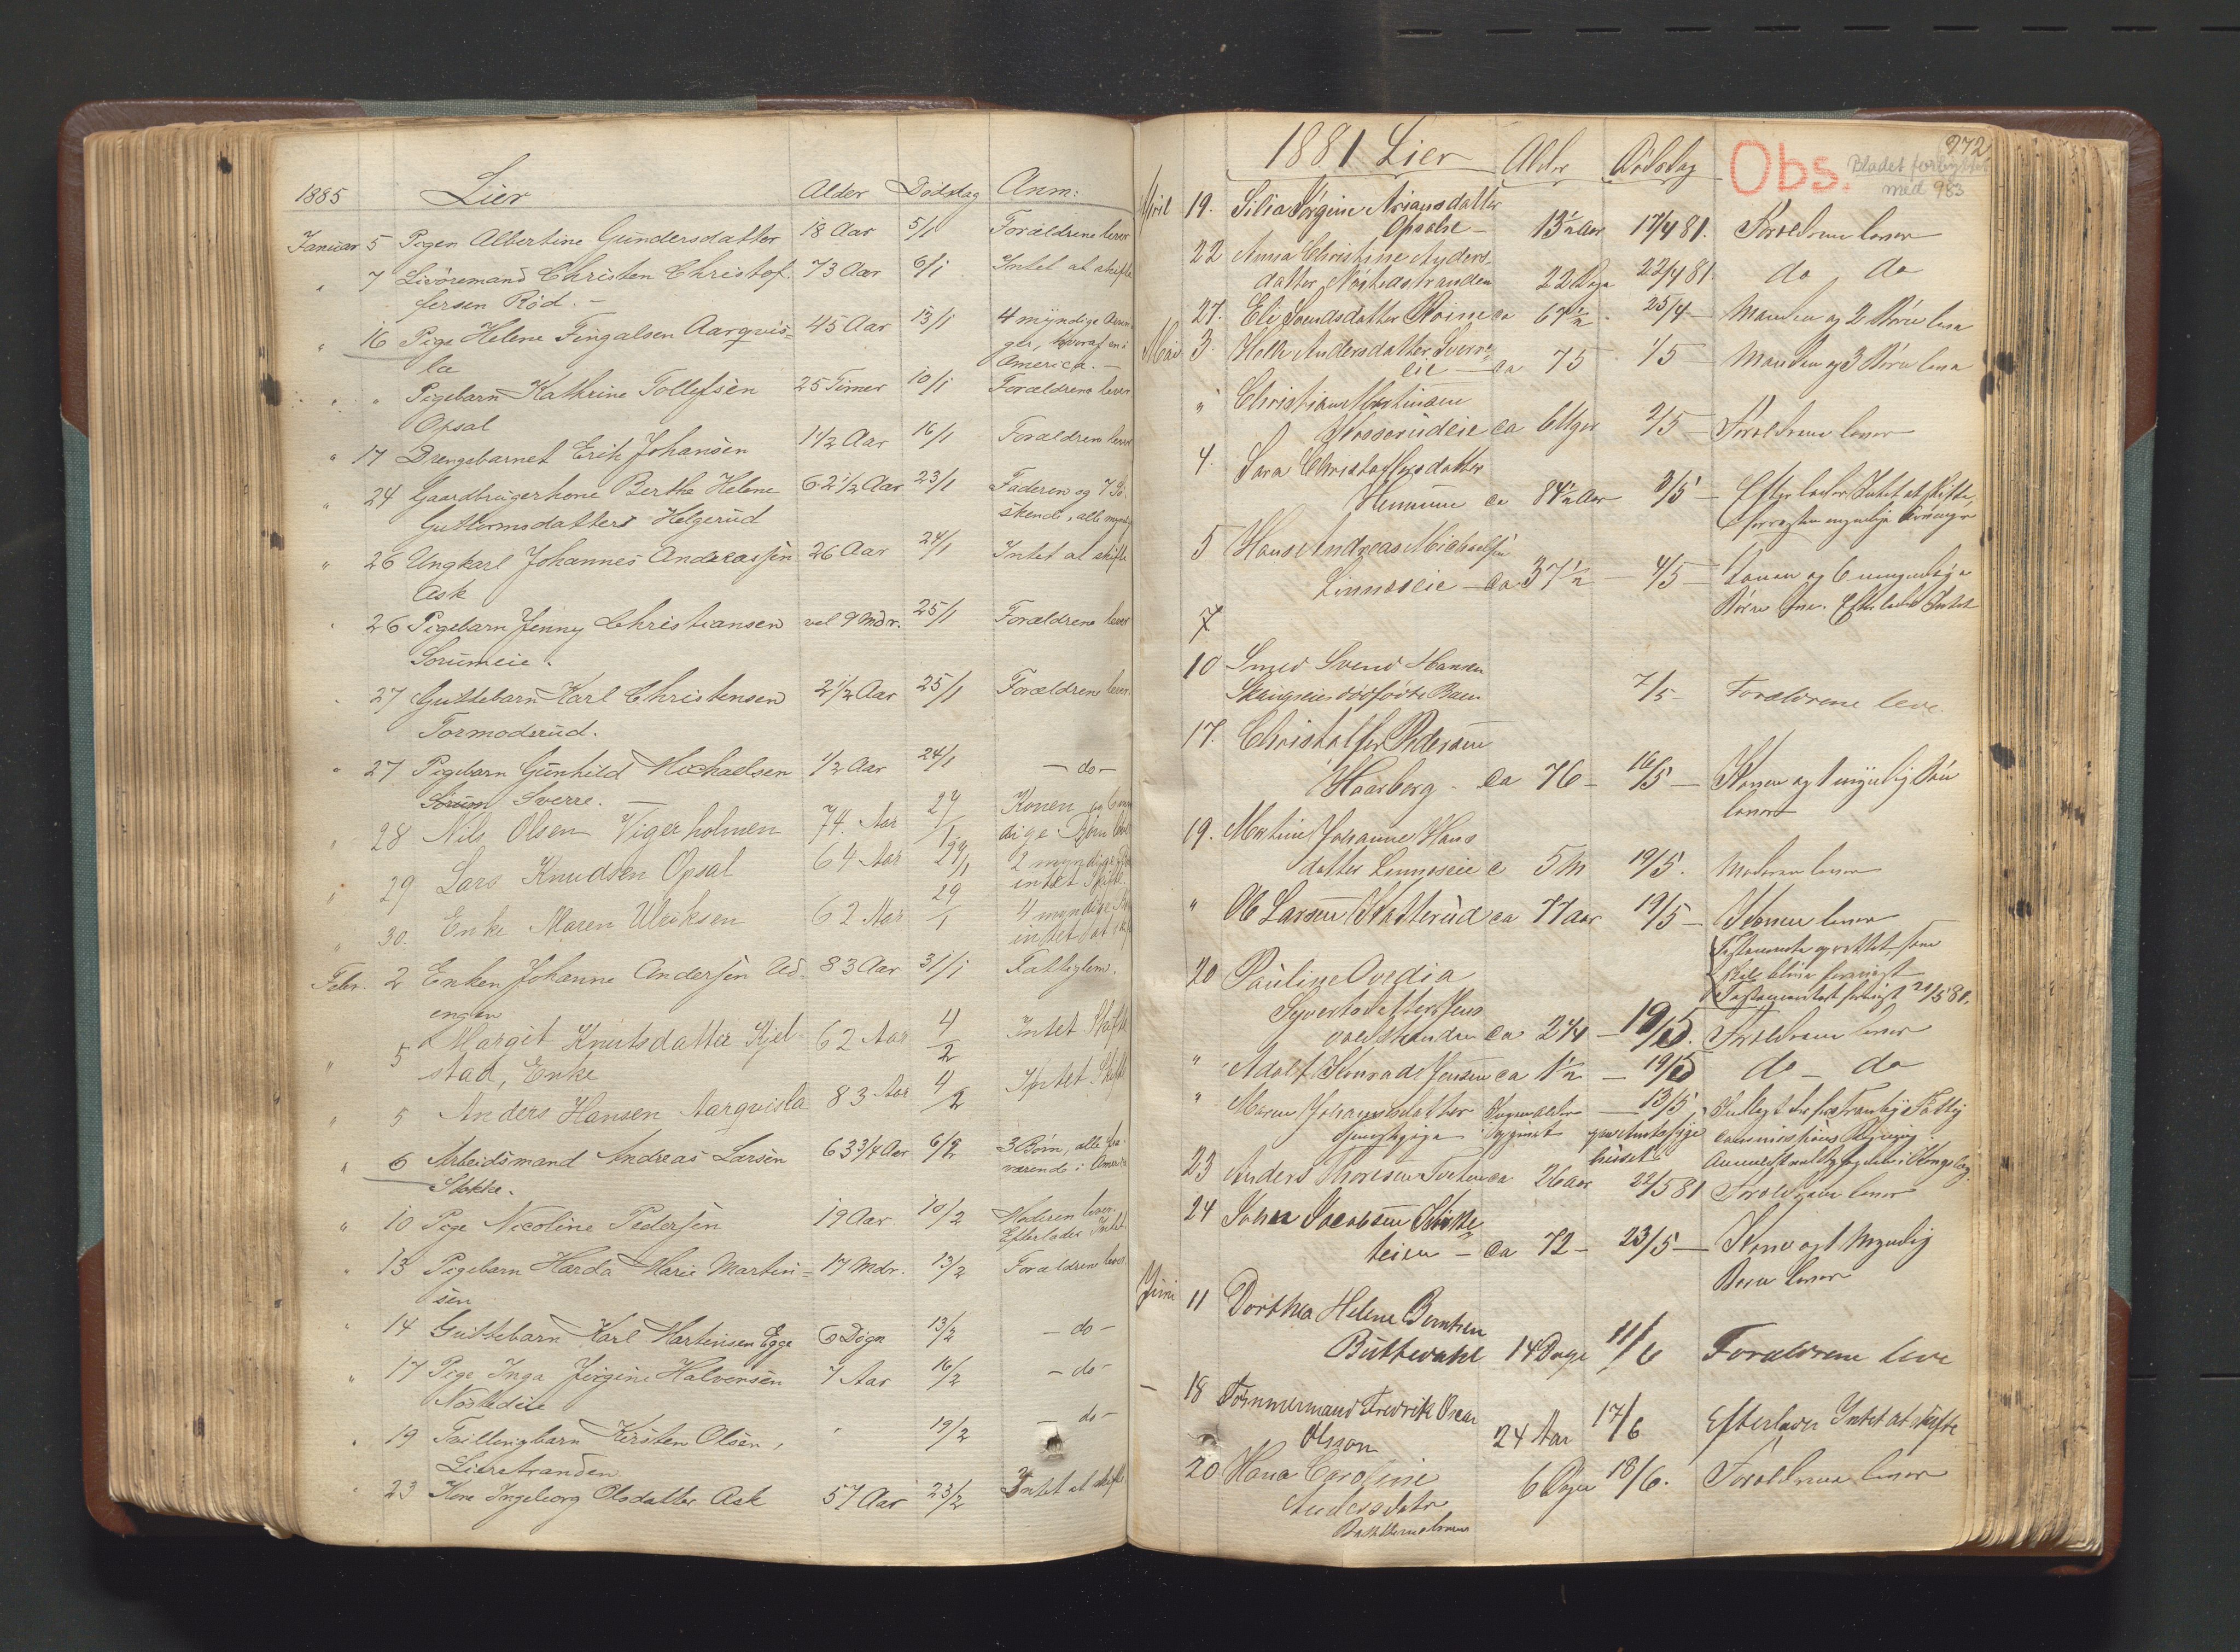 1885 Lier Alder Dødsdag Anm:
Januar 5 Pigen Albertine Gundersdatter 18 Aar 5/1 Forældrene lever
" 7 Livöremand Christen Christof- 73 Aar 6/1 Intet at skifte
fersen Röd. -
" 16 Pige Helene Fingalsen Aarqvis= 45 Aar 13/1 4 myndige
la hvoraf en i
America. -
" " Pigebarn Kathrine Tollefsen 25 Timer 10/1 Forældrene lever
Opsal
" 17 Drengebarnet Erik Johansen 1 1/2 Aar 16/1 Forældrene lever
" 24 Gaardbrugerkone Berthe Helene 62 1/2 Aar 23/1 Faderen og 7 Sö-
Guttormsdatter Helgerud skende, alle
" 26 Ungkarl Johannes Andreassen 26 Aar 24/1 Intet at skifte
Ask
" 26 Pigebarn Jenny Christiansen vel 9 Mdr. 25/1 Forældrene lever
Sorumeie.
" 27 Guttebarn Karl Christensen 2 1/2 Aar 25/1 Forældrene lever.
Tormoderud.
" 27 Pigebarn Gunhild Michaelsen 1/2 Aar 24/1 - do -
Sorum Sverre. -
" 28 Nils Olsen Vigerholmen 74. Aar 27/1 Konen og
dige Børn
" 29 Lars Knudsen Opsal 64 Aar 29/1 2 myndige
intet Skifte
" 30. Enke Maren Ulriksen 62 Aar 29/1 4 myndige
intet at
Febr. 2 Enken Johanne Andersen Ad= 83 Aar 31/1 Fattiglem.
engen
" 5 Margit Knutsdatter Kjel- 62 Aar 4/2 Intet Skifte
stad, Enke
" 5 Anders Hansen Aarqvisla 83 Aar 4/2 Intet Skifte
" 6 Arbeidsmand Andreas Larsen 63 3/4 Aar 6/2 3 Börn, alle
Stokke. værende i America
" 10 Pige Nicoline Pedersen 19 Aar 10/2 Moderen lever.
Efterlader Intet
" 13 Pigebarn Harda Marie Martin= 17 Mdr. 13/2 Forældrene lever.
sen
" 14 Guttebarn Karl Martinsen Egge 6 Døgn 13/2 - do -
" 17 Pige Inga Jörgine Halvorsen 7 Aar 16/2 - do -
" 19 Tvillingbarn Kirsten Olsen, " 19/2 - do -
Lierstranden
" 23 Kone Ingeborg Olsdatter Ask 57 Aar 23/2 Intet at skifte
1881 Lier Alder Dødsdag
Obs. 972
Bladet forbyttet
med 953
April 19. Silia Jørgine Ariansdatter
Opsahl - 13 1/2 Aar 17/4 81. Forældrene lever
22 Anna Christine Anders-
datter Nøstedstranden 22 Dage 22/4 81. do do
27. Eli Svendsdatter ca 67 1/2 25/4 - Manden og 2 Børn leve
Mai 3. Andersdatter Sverre
eie - ca 75 1/5 - Manden og 3 Børn leve
" Christian Martinsen
ca 2/5 - Forældrene lever
4. Sara Christoffersdatter
ca 84 1/2 Aar 3/5 - Efterlader Intet at skifte,
myndige Arvinger
5 Hans Andreas Michaelsen
Linneseie - ca 37 1/2 - 4/5 - Konen og 6 umyndige
Børn leve. Efterlader Intet
7
10 Smed Svend Hansen
dødfødte Barn 7/5 - Forældrene leve.
17. Christoffer Pedersen
Haarberg - ca 76 - 16/5 - Konen og 1 myndig Barn
lever
19. Martine Johanne Hans
datter Linneseie c 5 M 19/5. Moderen lever
" Ole Larsen ca 77 aar 19/5 - Konen lever
Testamente oprettet, som
skal blive forevist
Testamentet forevist 21/5 81.
20 Pauline Ovedia
Syvertsdatter
ca 2 1/4 - 19/5. Forældrene lever
" Adolf Konrad Jensen ca 1 1/2 - 19/5 do - do
" Maren Johannesdatter - 13/5,
Tjenestepige
huset
23 Anders Thoresen Tveten ca 26 aar 22/5 81 Forældrene lever
24 Johan Jacobsen
- ca 72 - 23/5 - Kone og 1 Myndig
Barn lever
Juni 11 Dorthea Helene Berntsen
Buttedahl 14 Dage 11/6 Forældrene leve
- 18 Tömmermand Fredrik Oscar
Olsson 24 Aar 17/6 Efterlader Intet at skifte
20 Hana Caroline
Andersdatr 6 Dage 18/6. Forældrene lever